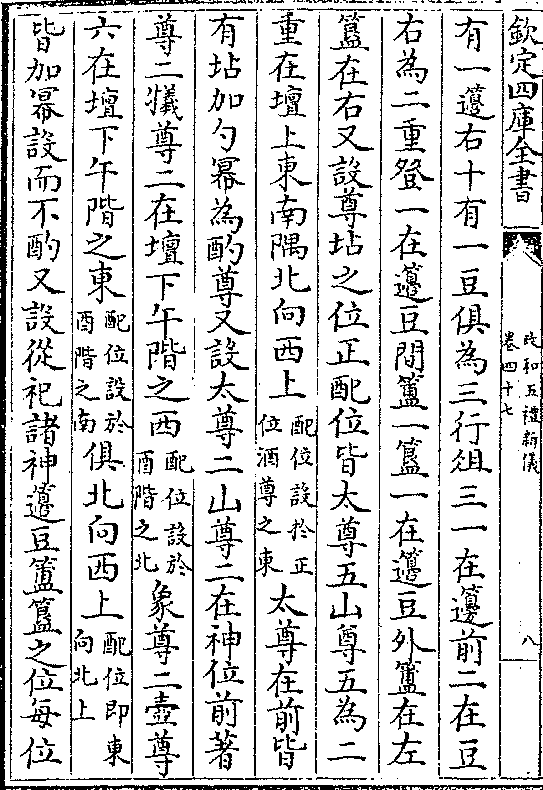 欽定四庫全書
政和五禮新儀
卷四十七
八
有一籩右十有一豆俱為三行俎三一在籩前二在豆
右為二重登一在籩豆間簠一簋一在籩豆外簠在左
簋在右又設尊坫之位正配位皆太尊五山尊五為二
重在壇上東南隅北向西上配位設於正位酒尊之東太尊在前皆
有坫加勺羃為酌尊又設太尊二山尊二在神位前著
尊二犧尊二在壇下午階之西配位設於酉階之北象尊二壺尊
六在壇下午階之東配位設於酉階之南俱北向西上配位即東向北上
皆加羃設而不酌又設從祀諸神籩豆簠簋之位每位